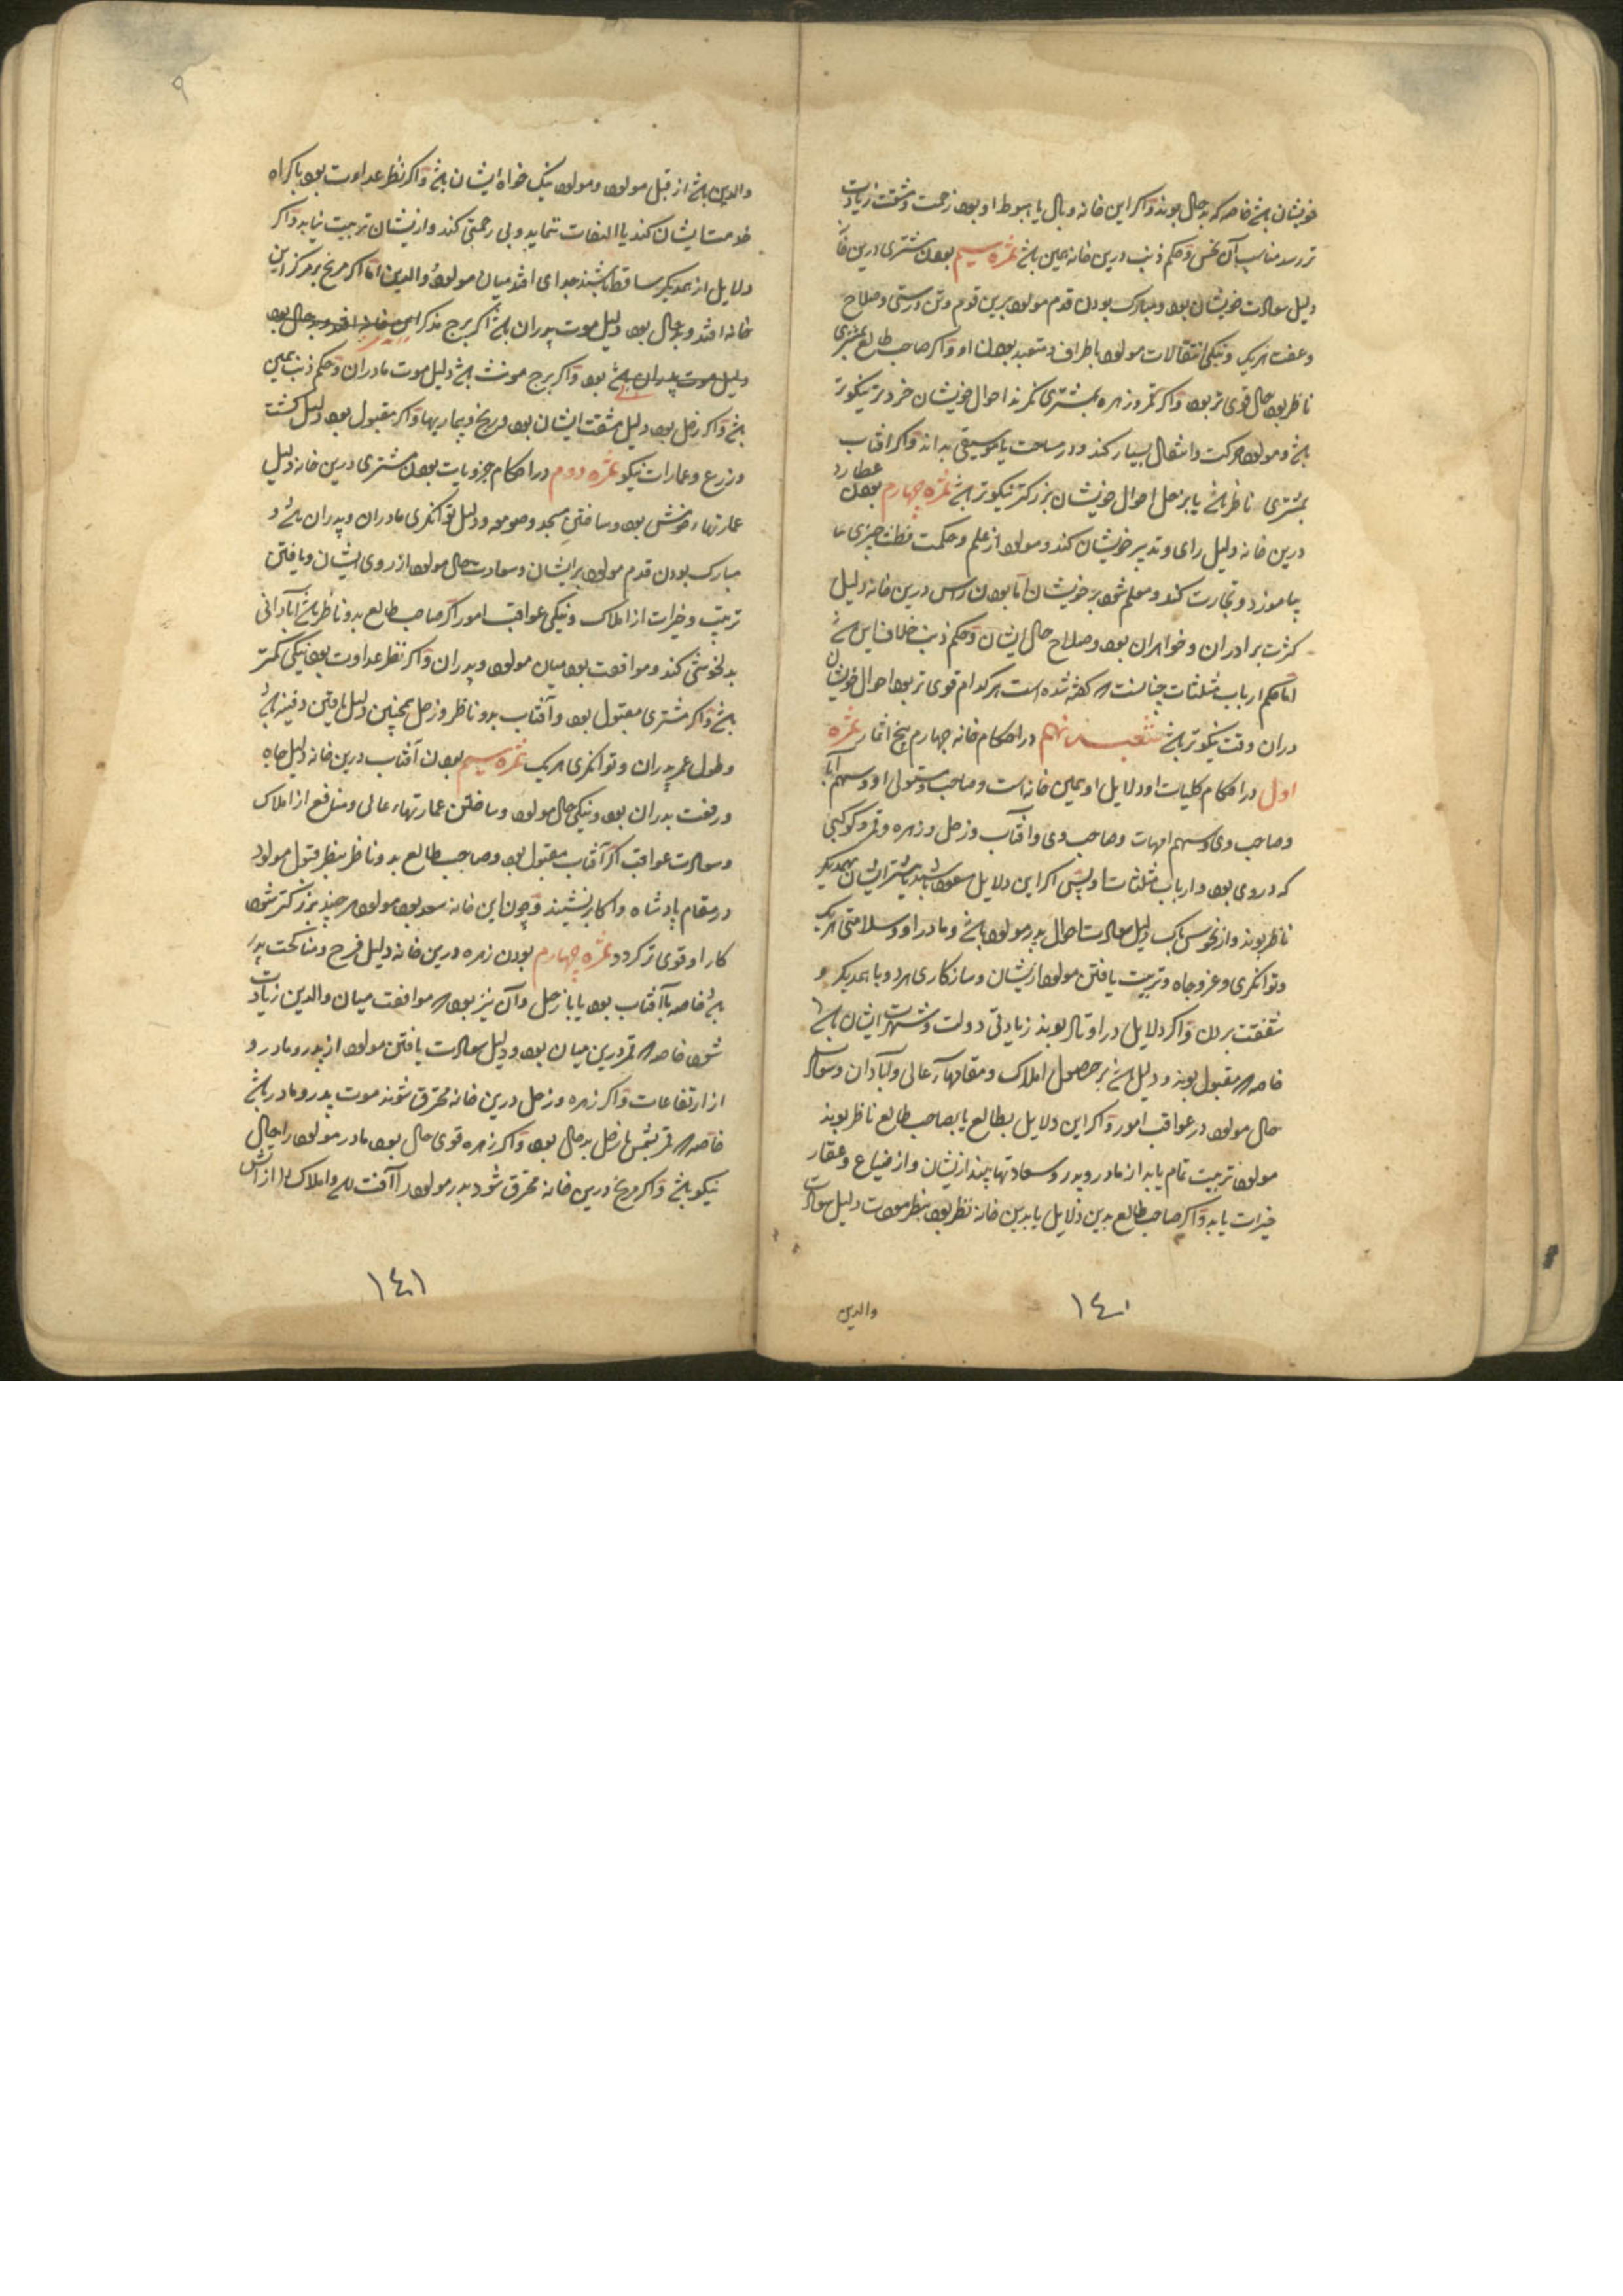 خویشان باشد خاصه که بدحال بوند و اگر این خانه وبال یا هبوط او بود زحمت و مشقت زیادت
تر رسد مناسب آن نحس و حکم ذنب درین خانه همین باشد ثمره سیم بودن مشتری درین خانه
دلیل سعادت خویشان بود و مبارک بودن قدم مولود برین قوم و تن درستی و صلاح
و عفت هریک و نیکی انتقالات مولود باطراف و متعبد بودن او و اگر صاحب طالع بمشتری
ناظر بود حال قوی تر بود و اگر قمر و زهره بمشتری نگرند احوال خویشان خرد تر نیکوتر
باشد و مولود حرکت و انتقال بسیار کند و در ساحت یا موسیقی بداند و اگر افتاب
بمشتری ناظر باشد یا بزحل احوال خویشان بزرگتر نیکوتر باشد ثمره چهارم بودن عطارد
درین خانه دلیل رای و تدبیر خویشان کند و مولود از علم و حکمت و فطنت چیزی ها
بیاموزد و تجارت کند و معلم شود بر خویشان اما بودن راس درین خانه دلیل
کثرت برادران و خواهران بود و صلاح حال ایشان و حکم ذنب خلاف این باشد
اما حکم ارباب مثلثات چنانست که گفته شده است هر کدام قوی تر بود احوال خویشان
دران وقت نیکوتر باشد شعبه نهم در احکام خانه چهارم پنج اثمار ثمره
اول در احکام کلیات او دلایل او همین خانه است و صاحب و مستولی او و سهم آبا
و صاحب وی و سهم امهات و صاحب وی و افتاب و زحل و زهره و قمر و کوکبی
که در وی بود و ارباب مثلثات او پس اگر این دلایل مسعود باشند یا بیشتر ایشان بهمدیگر
ناظر بوند و از نحوس پاک دلیل سعادت احوال پدر مولود باشد و مادر او و سلامتی هریک
و توانگری و عز و جاه و تربیت یافتن مولود ازیشان و سازگاری هر دو با همدیگر و
شفقت بردن و اگر دلایل در اوتاد بوند زیادتی دولت و شهرت ایشان باشد
خاصه که مقبول بوند و دلیل باشد بر حصول املاک و مقامهاء عالی و آبادان و سعادت
حال مولود در عواقب امور و اگر این دلایل بطالع یا بصاحب طالع ناظر بوند
مولود تربیت تمام یابد از مادر و پدر و سعادتها بیند ازیشان و از ضیاع و عقار
خیرات یابد و اگر صاحب طالع بدین دلایل یا بدین خانه نظر بود بنظر مودت دلیل سعادت
والدین
١٤٠
٩
والدین باشد از قبل مولود و مولود نیک خواه ایشان باشد و اگر نظر عداوت بود باکراه
خدمت ایشان کند یا التفات ننماید و بی رحمتی کند و ازیشان تربیت نیابد و اگر
دلایل از همدیگر ساقط باشند جدای افتد میان مولود و والدین اما اگر مریخ بر مرکز این
خانه افتد و بدحال بود دلیل موت پدران باشد اگر برج مذکر
بود و اگر برج مونث باشد دلیل موت مادران و حکم ذنب همین
باشد و اگر زحل بود دلیل مشقت ایشان بود و رنج و بیماریها و اگر مقبول بود دلیل کشت
و زرع و عمارات نیکو ثمره دوم در احکام جزویات بودن مشتری درین خانه دلیل
عمارتهاء خوش بود و ساختن مسجد و صومعه و دلیل توانگری مادران و پدران باشد و
مبارک بودن قدم مولود بر ایشان و سعادت حال مولود از روی ایشان و یافتن
تربیت و خیرات از املاک و نیکی عواقب امور اگر صاحب طالع بدو ناظر باشد آبادانی
بدلخوشی کند و موافقت بود میان مولود و پدران و اگر نظر عداوت بود نیکی کمتر
باشد و اگر مشتری مقبول بود و آفتاب بدو ناظر و زحل همچنین دلیل یافتن دفینه باشد
و طول عمر پدران و توانگری هریک ثمره سیم بودن آفتاب درین خانه دلیل جاه
و رفعت پدران بود و نیکی حال مولود و ساختن عمارتهاء عالی و منافع از املاک
و سعادت عواقب اگر آفتاب مقبول بود و صاحب طالع بدو ناظر بنظر قبول مولود
در مقام پادشاه و اکابر نشیند و چون این خانه سعد بود مولود هر چند بزرگتر شود
کار او قوی تر گردد ثمره چهارم بودن زهره درین خانه دلیل فرح و مناکحت پدر
باشد خاصه با آفتاب بود یا با زحل و آن نیز بود که موافقت میان والدین زیادت
شود خاصه که قمر درین میان بود و دلیل سعادت یافتن مولود از پدر و مادر و
از ارتفاعات و اگر زهره و زحل درین خانه محترق شوند موت پدر و مادر باشد
خاصه که قمر بشمس یا زحل بدحال بود و اگر زهره قوی حال بود مادر مولود را حال
نیکو باشد و اگر مریخ درین خانه محترق شود پدر مولود را آفت رسد و املاک را از آتش
١٤١